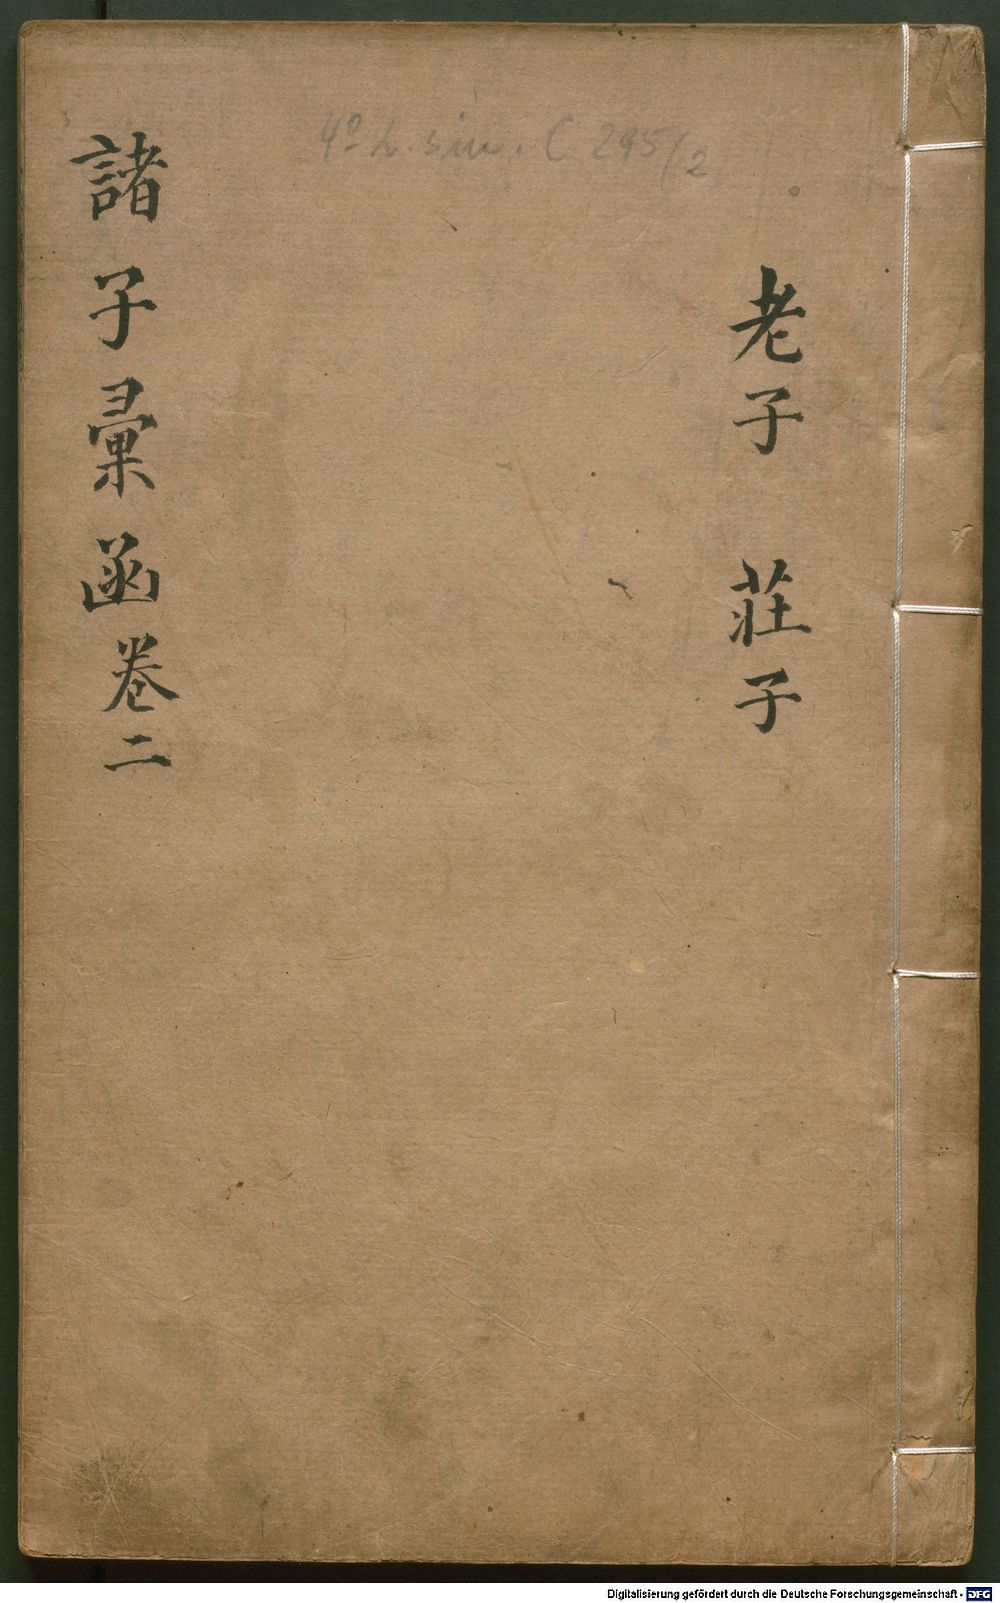 老子 莊子
諸子彙函卷二
4° L. sin. C 295/2
Digitalisierung gefördert durch die Deutsche Forschungsgemeinschaft - DFG